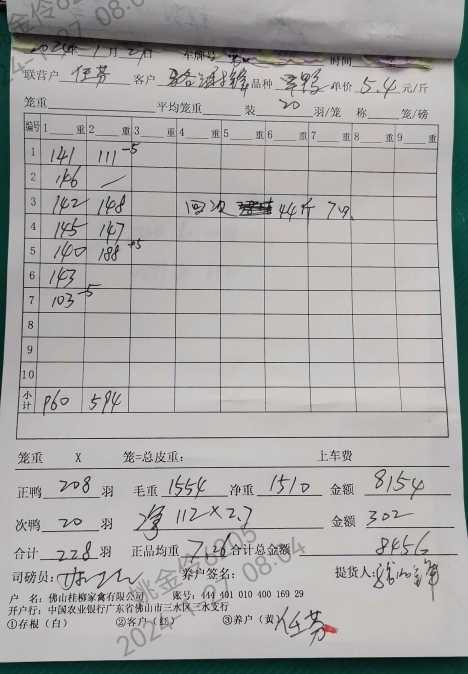 2024年1月27日 车牌号 时间
联营户 任芬 客户 品种 单价 5.4 元/斤
笼重 平均笼重 装 20 羽/笼 称 笼/磅
编号 1 重 2 重 3 重 4 重 5 重 6 重 7 重 8 重 9 重
1 141 111-5
2 146 /
3 142 148 回次 44斤 7只
4 145 147
5 140 188
6 143
7 103-5
8
9
10
小计 960 594
笼重 X 笼=总皮重: 上车费
正鸭 208 羽 毛重 1554 净重 1510 金额 8154
次鸭 20 羽 净 112×2.7 金额 302
合计 228 羽 正品均重 7.26 合计总金额 8456
司磅员: 养户签名: 提货人:
户 名: 佛山桂柳家禽有限公司 账号: 444 401 010 400 169 29
开户行: 中国农业银行广东省佛山市三水区三水支行
①存根（白） ②客户（红） ③养户（黄） 任芬